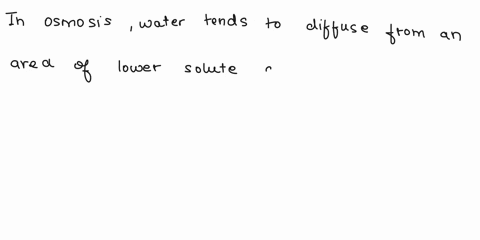 In osmosis, water tends to diffuse from an
area of lower solute